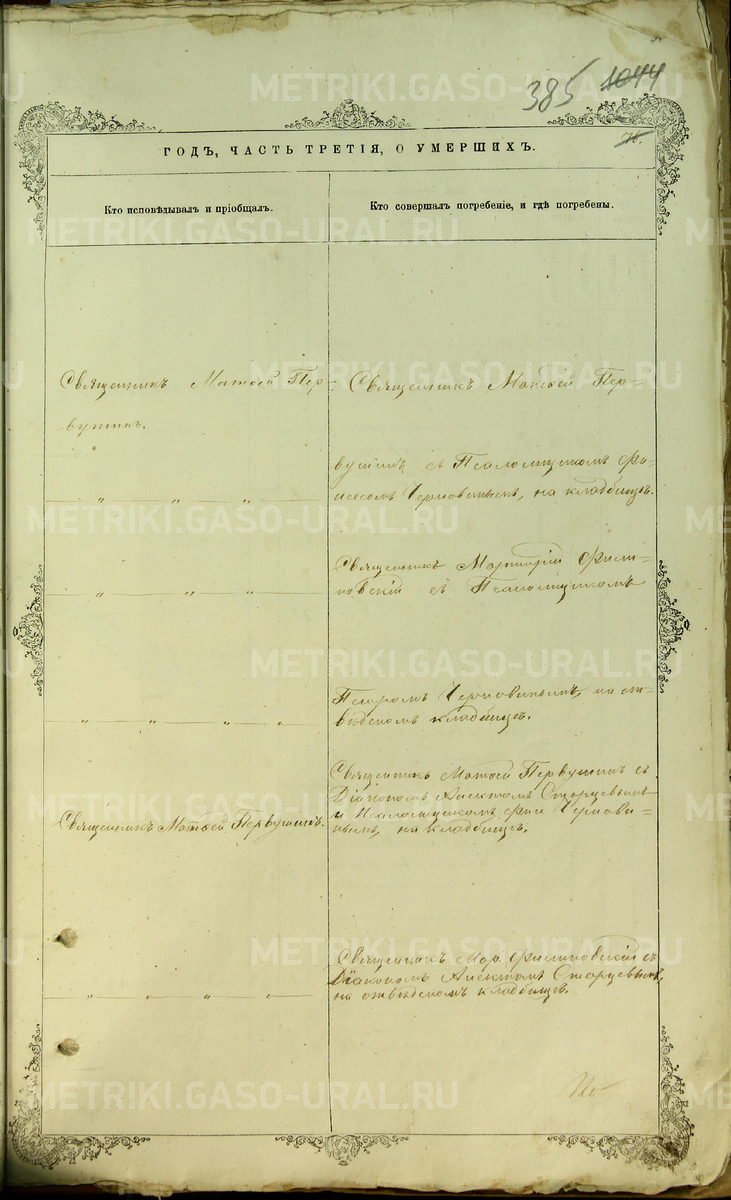 385 1044
76.
ГОДЪ, ЧАСТЬ ТРЕТІЯ, О УМЕРШИХЪ.
Кто исповѣдывалъ и пріобщалъ.
Кто совершалъ погребеніе, и гдѣ погребены.
Священникъ Матѳей Пер-
вушинъ.
Священникъ Матѳей Пер-
вушинъ съ Псаломщикомъ
Черновинымъ, на кладбищѣ.
" " "
Священникъ Мартирій Фили-
повскій съ Псаломщикомъ
" " "
Петромъ Черновинымъ, на от-
вѣдскомъ кладбищѣ.
" " " "
Священникъ Матѳей Первушинъ.
Священникъ Матѳей Первушинъ съ
Діакономъ Анектомъ Старцевымъ
и Псаломщикомъ Чернови-
нымъ, на кладбищѣ.
Священникъ Мар. Филиповскій съ
Діакономъ Анектомъ Старцевымъ,
на отвѣдскомъ кладбищѣ.
" " " "
METRIKI.GASO-URAL.RU